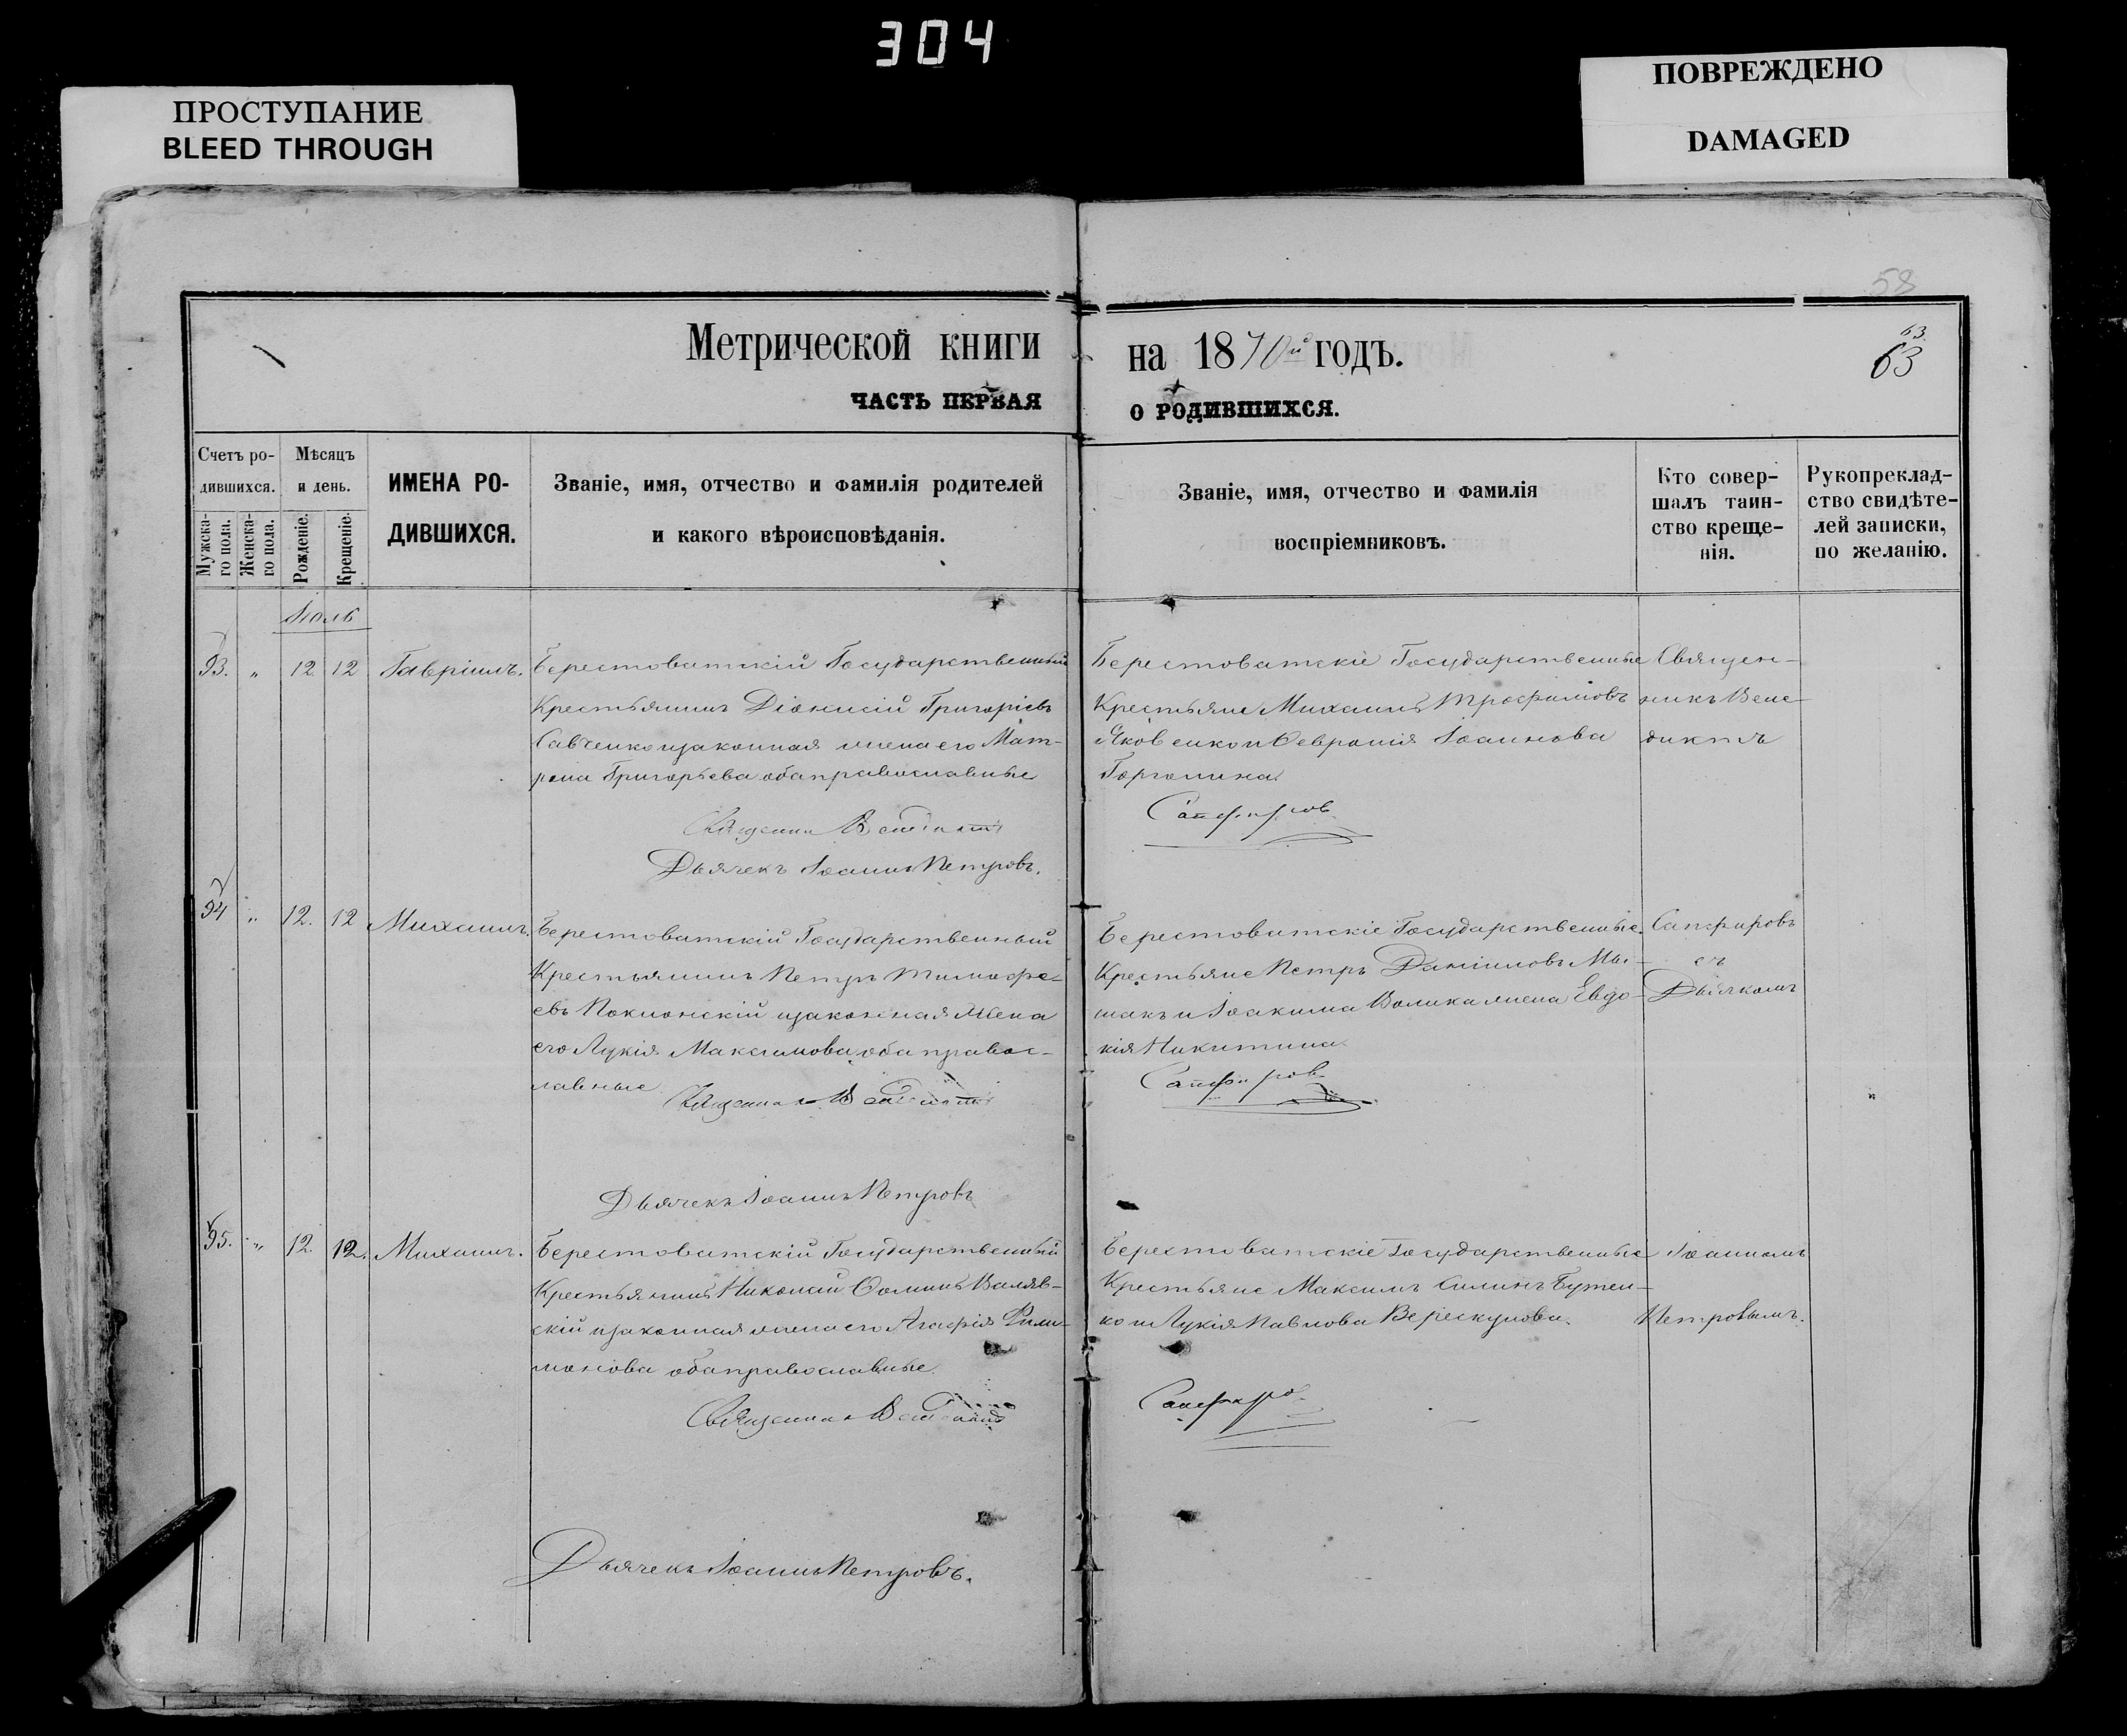 304
ПРОСТУПАНИЕ
BLEED THROUGH
ПОВРЕЖДЕНО
DAMAGED
58
Метрической книги
на 1870й годъ.
63
63
ЧАСТЬ ПЕРВАЯ
О РОДИВШИХСЯ.
Счетъ ро-
дившихся.
Мужска-
го пола.
Женска-
го пола.
Мѣсяцъ
и день.
Рожденіе.
Крещеніе.
ИМЕНА РО-
ДИВШИХСЯ.
Званіе, имя, отчество и фамилія родителей
и какого вѣроисповѣданія.
Званіе, имя, отчество и фамилія
воспріемниковъ.
Кто совер-
шалъ таин-
ство креще-
нія.
Рукопреклад-
ство свидѣте-
лей записки,
по желанію.
Июль
93. " 12. 12 Гавріилъ.
Берестоватскій Государственный
Крестьянинъ Діонисій Григоріевъ
Савченко и законная жена его Мат-
рона Григорьева оба православные
Священник Венедиктъ
Дьячекъ Іоаннъ Петровъ.
Берестоватскіе Государственные
Крестьяне Михаилъ Трофимовъ
Яковенко и Февронія Іоаннова
Сапфиров
Священ-
никъ Вене-
диктъ
94 " 12. 12 Михаилъ.
Берестоватскій Государственный
Крестьянинъ Петръ Тимофе-
евъ Поклонскій и законная жена
его Лукія Максимова оба правос-
лавные
Священник Венедиктъ
Дьячекъ Іоаннъ Петровъ
Берестоватскіе Государственные
Крестьяне Петръ Даніиловъ Мы-
шакъ и Іоакима Волика жена Евдо-
кія Никитина
Сапфиров
Сапфировъ
съ
Дьячкомъ
95. " 12. 12. Михаилъ.
Берестоватскій Государственный
Крестьянинъ Николай Фоминъ Валяв-
скій и законная жена его Агафія Фили-
монова оба православные.
Священник Венедиктъ
Дьячекъ Іоаннъ Петровъ.
Берестоватскіе Государственные
Крестьяне Максимъ Силинъ Бутен-
ко и Лукія Павлова Верескунова.
Сапфиро
Іоанномъ
Петровымъ.